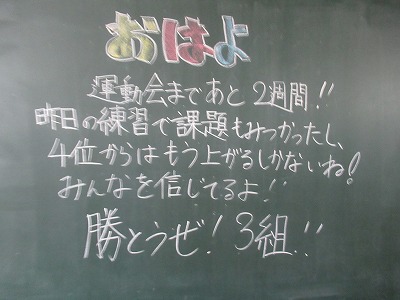 おはよ
運動会まであと2週間!!
昨日の練習で課題もみつかったし、
4位からはもう上がるしかないね!
みんなを信じてるよ!!
勝とうぜ!3組!!